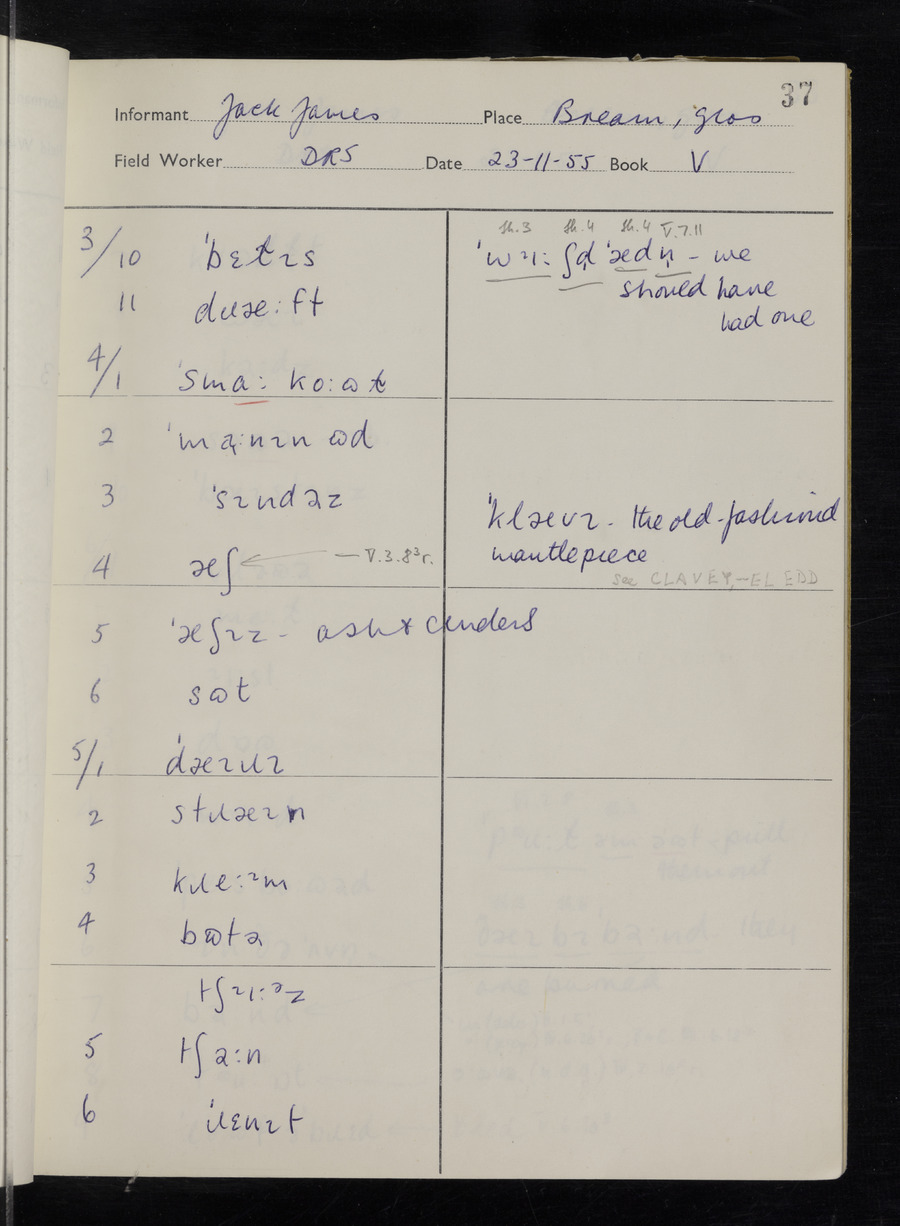 37
Informant Jack James Place Bream, Glos
Field Worker DRS Date 23-11-55 Book V
3/10 ˈbɛtɪs
11 dɹæ:ft
4/1 ˈsmɑ: ko:ɷt
2
3 ˈsɪndəz
4 æʃ V.3.8³r.
5 ˈæʃɪz - ash & cinders
6 sɷt
5/1 ˈdæɪɹɪ
2 stɹæɪn
3 kɹe:ɪm
4 bɷtə
tʃɪi:əz
5 tʃə:n
6 ˈɹɛnɪt
sh.3 sh.4 sh.4 V.7.11
ˈwɪi: ʃd ˈædn̩ - we
should have
had one
ˈklævɪ - the old-fashioned
mantlepiece
see CLAVEY, -EL EDD